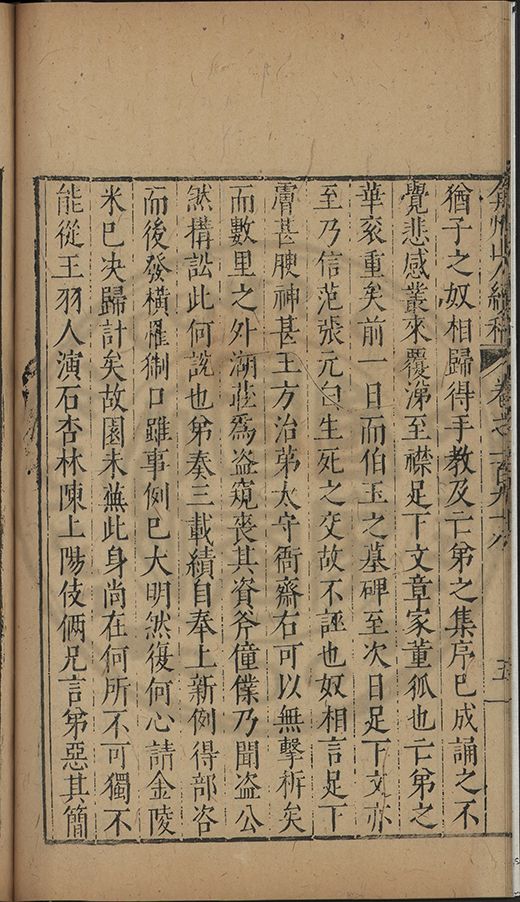 弇州山人續稿 卷之一百九十八 五
猶子之奴相歸得手教及亡弟之集序已成誦之不
覺悲感叢來覆涕至襟足下文章家董狐也亡弟之
華衮重矣前一日而伯玉之墓碑至次日足下文亦
至乃信范張元白生死之交故不誣也奴相言足下
膚甚腴神甚王方治第太守衙齋右可以無擊柝矣
而數里之外湖莊爲盗窺喪其資斧僮僕乃聞盗公
然搆訟此何說也弟奏三載績自奉上新例得部咨
而後發橫罹猘口雖事例已大明然復何心請金陵
米已决歸計矣故園未蕪此身尚在何所不可獨不
能從王羽人演石杏林陳上陽伎倆兄言弟惡其簡